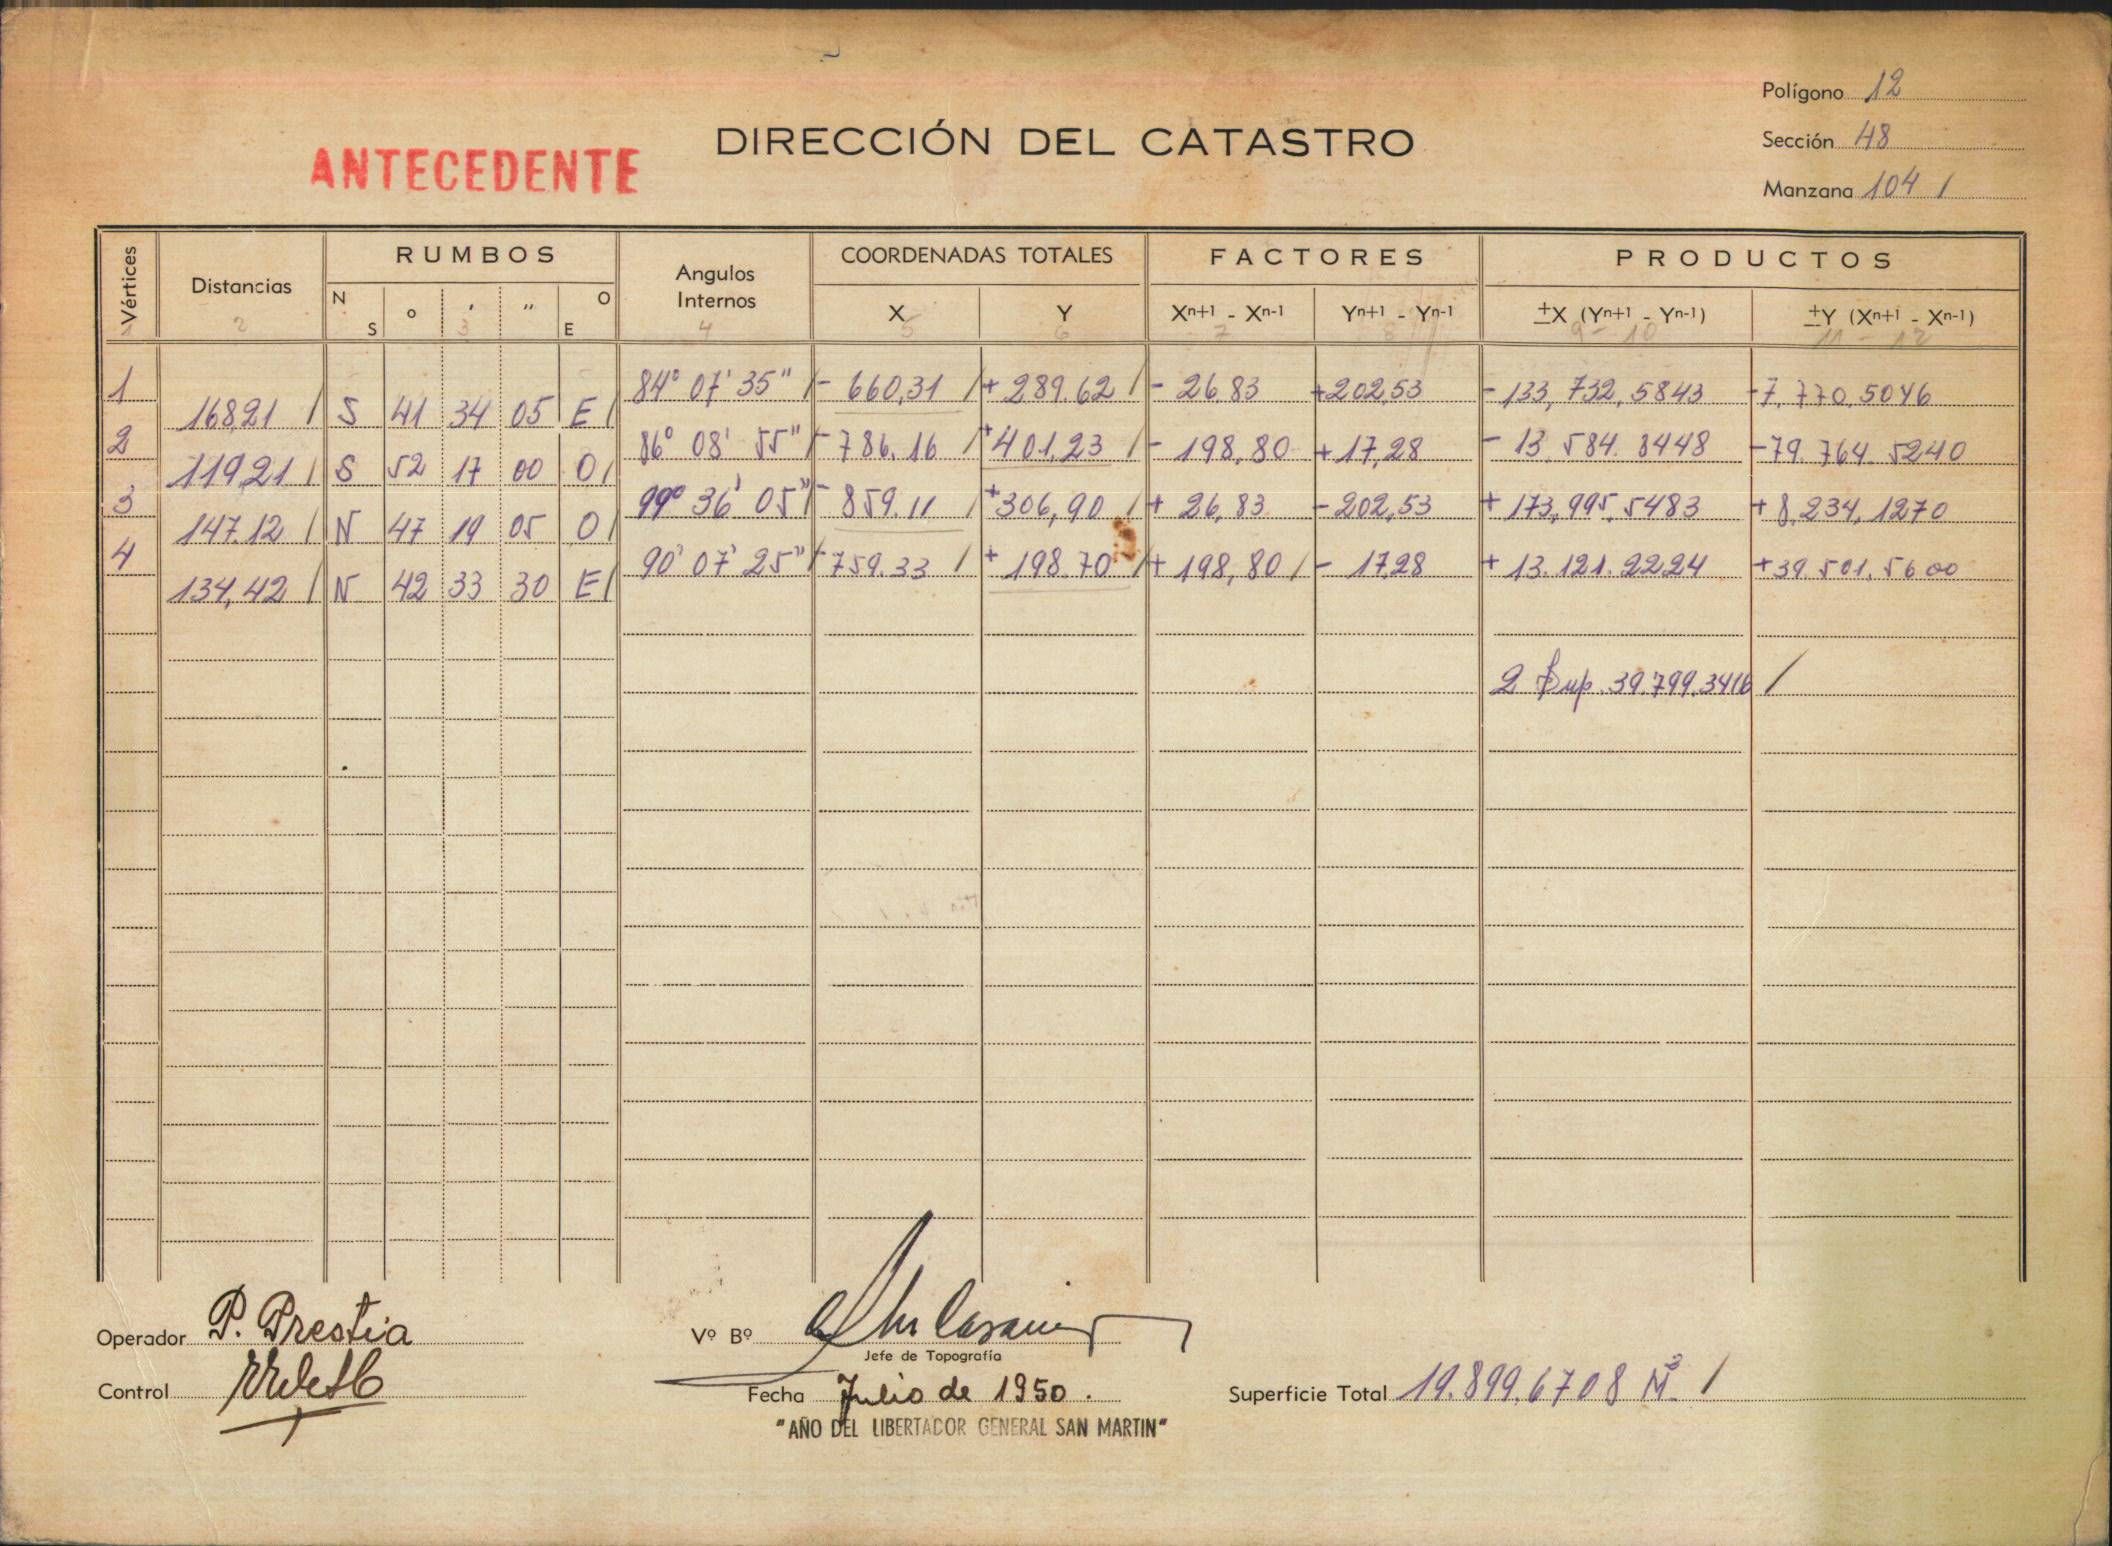 Polígono 12
DIRECCIÓN DEL CATASTRO
Sección 48
ANTECEDENTE
Manzana 104 /
Vértices Distancias RUMBOS Angulos Internos COORDENADAS TOTALES FACTORES PRODUCTOS
N S ° ' " O E X Y Xn+1 - Xn-1 Yn+1 - Yn-1 ±X (Yn+1 - Yn-1) ±Y (Xn+1 - Xn-1)
1 2 3 4 5 6 7 8 9 - 10 11 - 12
1 84° 07' 35" / - 660,31 / + 289.62 / - 26.83 +202,53 - 133,732,5843 -7.770,5046
168,21 / S 41 34 05 E /
2 86° 08' 55" - 786.16 / + 401,23 / - 198,80 + 17,28 - 13.584.8448 -79.764.5240
119,21 / S 52 17 00 O /
3 99° 36' 05" - 859.11 / + 306,90 / + 26,83 - 202,53 + 173,995,5483 + 8.234,1270
147.12 / N 47 19 05 O /
4 90° 07' 25" / - 759.33 / + 198.70 / + 198,80 / - 17,28 + 13.121.2224 +39.501.5600
134,42 / N 42 33 30 E /
2 Sup. 39.799.3416 /
Operador P. Prestia
Vº Bº
Jefe de Topografía
Control
Fecha Julio de 1950.
Superficie Total 19.899,6708 M² /
"AÑO DEL LIBERTADOR GENERAL SAN MARTIN"